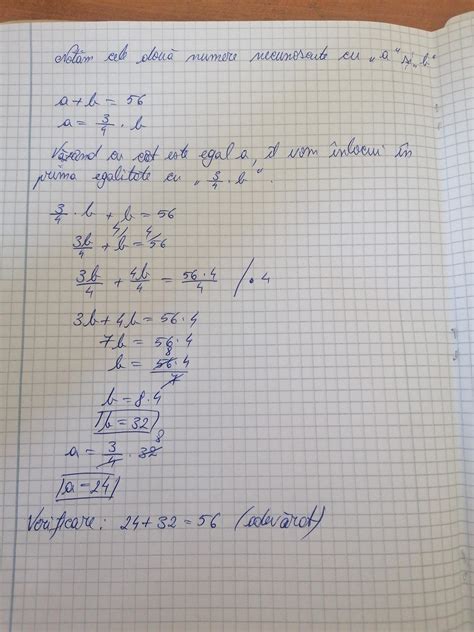 Notăm cele două numere necunoscute cu „a" și „b"
a+b = 56
a = 3/4 · b
Văzând cu cât este egal a, îl vom înlocui în
prima egalitate cu „3/4 · b".
3/4 · b + b = 56
3b/4 + 4/b = 4/56
3b/4 + 4b/4 = 56·4/4 /·4
3b+4b = 56·4
7b = 56·4
b = 56·4/7 8
b = 8·4
b = 32
a = 3/4 · 32 8
a = 24
Verificare: 24+32 = 56 (adevărat)